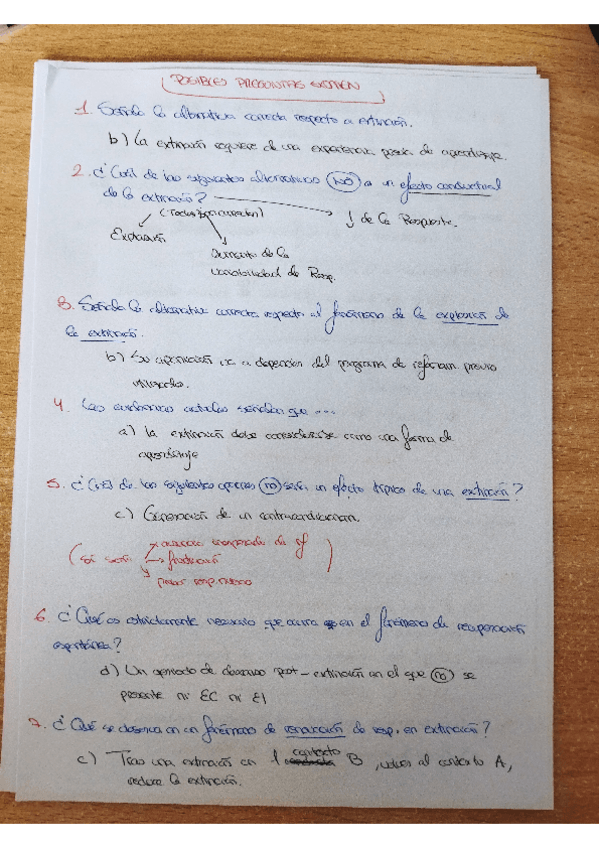 POSIBLES PREGUNTAS EXAMEN
1. Señala la alternativa correcta respecto a extinción.
b) La extinción requiere de una experiencia previa de aprendizaje.
2. ¿Cuál de las siguientes alternativas NO es un efecto conductual
de la extinción?
↓ de la Respuesta.
Explosión
Aumento de la
variabilidad de Resp.
3. Señala la alternativa correcta respecto al fenómeno de la explosión de
la extinción.
b) Su aparición va a depender del programa de reforzam. previo
utilizado.
4. Las evidencias actuales señalan que ...
a) la extinción debe considerarse como una forma de
aprendizaje
5. ¿Cuál de las siguientes opciones NO sería un efecto típico de una extinción?
c) Generación de un contracondicionam.
(sí son ausencia inesperada de rf
frustración
)
6. ¿Qué es estrictamente necesario que ocurra en el fenómeno de recuperación
espontánea?
d) Un periodo de descanso post-extinción en el que no se
presente ni EC ni EI
7. ¿Qué se observa en un fenómeno de renovación de resp. en extinción?
c) Tras una extinción en contexto B, vuelves al contexto A,
reduce la extinción.